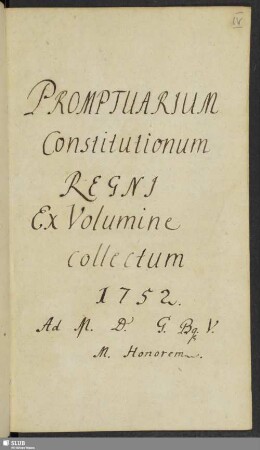 IV
PROMPTUARIUM
Constitutionum
REGNI
Ex Volumine
collectum
1752.
Ad M. D. G. Bg. V.
M. Honorem.
SLUB